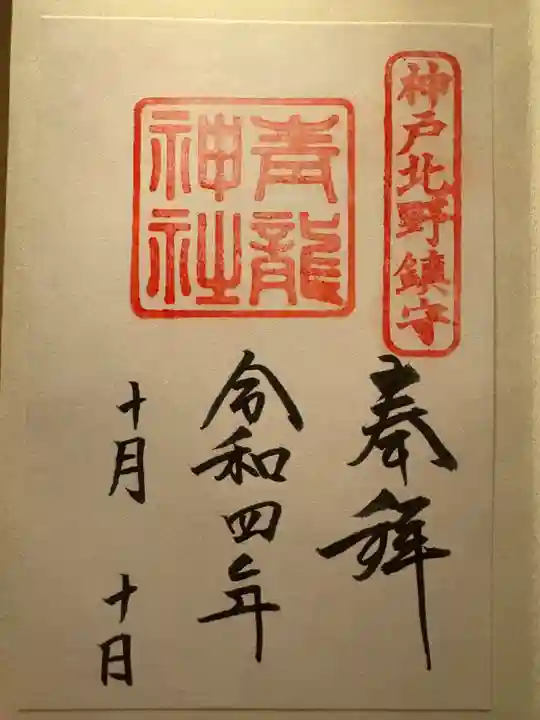 神戸北野鎮守
奉拝
青龍
神社
令和四年
十月十日